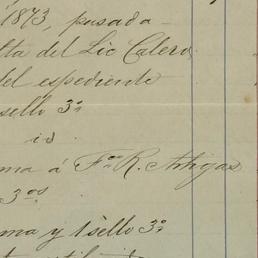 1873, pasada
lta del Lic Calero,
del espediente
sello 3º
id
ma á F. R. Artigas
3os
ma y 1 sello 3º